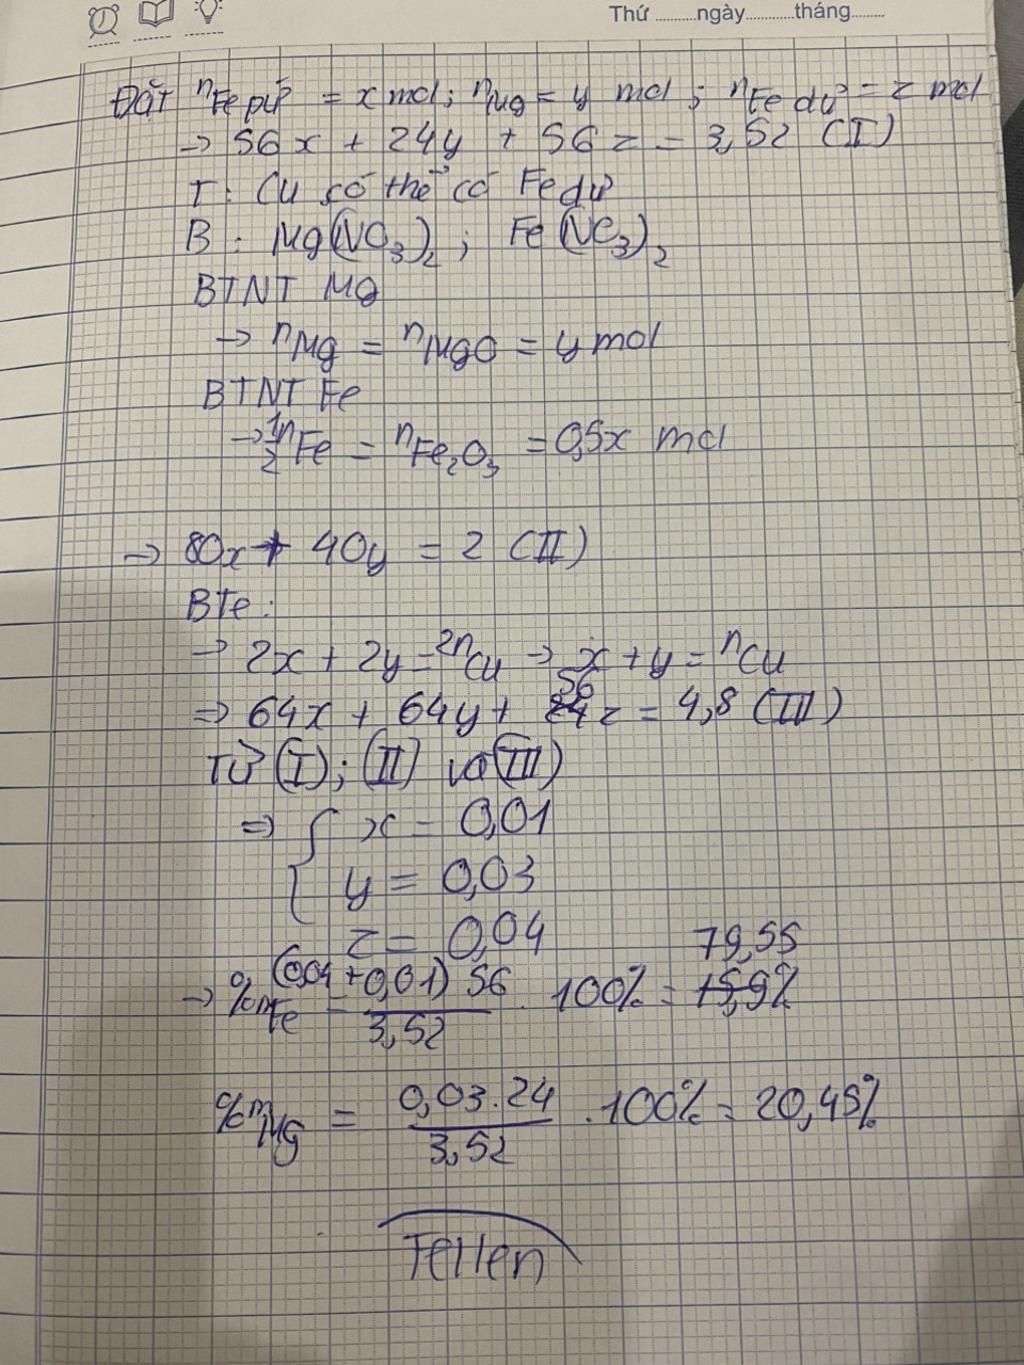 Thứ ..........ngày............tháng........
Đặt nFe pứ = x mol; nMg = y mol; nFe dư = z mol
→ 56x + 24y + 56z = 3,52 (I)
T: Cu có thể có Fe dư
B: Mg(NO3)2; Fe(NO3)2
BTNT Mg
→ nMg = nMgO = y mol
BTNT Fe
→ 1/2 nFe = nFe2O3 = 0,5x mol
→ 80x + 40y = 2 (II)
BTe:
→ 2x + 2y = 2nCu → x + y = nCu
⇒ 64x + 64y + 56z = 4,8 (III)
Từ (I); (II) và (III)
⇒ { x = 0,01
y = 0,03
z = 0,04
→ %mFe = (0,04 + 0,01) 56 / 3,52 . 100% = 79,55%
%mMg = 0,03.24 / 3,52 . 100% = 20,45%